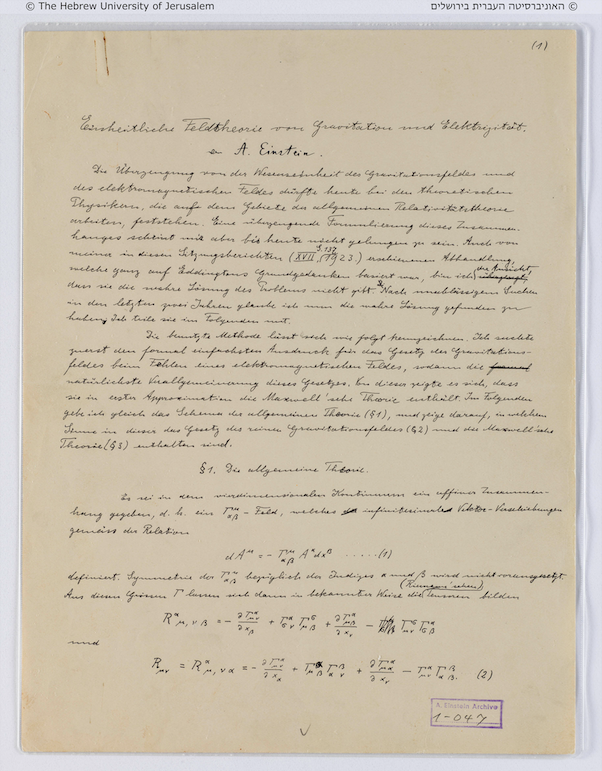 © The Hebrew University of Jerusalem
האוניברסיטה העברית בירושלים ©
(1)
Einheitliche Feldtheorie von Gravitation und Elektrizität.
A. Einstein.
Die Überzeugung von der Wesenseinheit des Gravitationsfeldes und
des elektromagnetischen Feldes dürfte heute bei den theoretischen
Physikern, die auf dem Gebiete der allgemeinen Relativitätstheorie
arbeiten, feststehen. Eine überzeugende Formulierung dieses Zusammen-
hanges scheint mir aber bis heute nicht gelungen zu sein. Auch von
meiner in diesen Sitzungsberichten (XVII, S. 137 1923) erschienenen Abhandlung,
welche ganz auf Eddingtons Grundgedanken basiert war, bin ich die Ansicht,
dass sie die wahre Lösung des Problems nicht gibt. Nach unablässigem Suchen
in den letzten zwei Jahren glaube ich nun die wahre Lösung gefunden zu
haben. Ich teile sie im Folgenden mit.
Die benutzte Methode lässt sich wie folgt kennzeichnen. Ich suchte
zuerst den formal einfachsten Ausdruck für das Gesetz des Gravitations-
feldes beim Fehlen eines elektromagnetischen Feldes, sodann die
natürlichste Verallgemeinerung dieses Gesetzes. Von dieser zeigte es sich, dass
sie in erster Approximation die Maxwell'sche Theorie enthält. Im Folgenden
gebe ich gleich das Schema der allgemeinen Theorie (§1), und zeige darauf, in welchem
Sinne in dieser das Gesetz des reinen Gravitationsfeldes (§2) und die Maxwell'sche
Theorie (§3) enthalten sind.
§1. Die allgemeine Theorie.
Es sei in dem vierdimensionalen Kontinuum ein affiner Zusammen-
hang gegeben, d. h. ein Γ^μ_αβ - Feld, welches infinitesimale Vektor-Verschiebungen
gemäss der Relation
dA^μ = - Γ^μ_αβ A^α dx^β ......(1)
definiert. Symmetrie der Γ^μ_αβ bezüglich der Indizes α und β wird nicht vorausgesetzt.
Aus diesen Grössen Γ lassen sich dann in bekannter Weise die (Riemann'schen) Tensoren bilden
R^α_μ,νβ = - ∂Γ^α_μν/∂x_β + Γ^α_σν Γ^σ_μβ + ∂Γ^α_μβ/∂x_ν - Γ^σ_μν Γ^α_σβ
und
R_μν = R^α_μ,να = - ∂Γ^α_μν/∂x_α + Γ^β_μα Γ^α_βν + ∂Γ^α_μα/∂x_ν - Γ^α_μν Γ^β_αβ. (2)
A. Einstein Archive
1-047